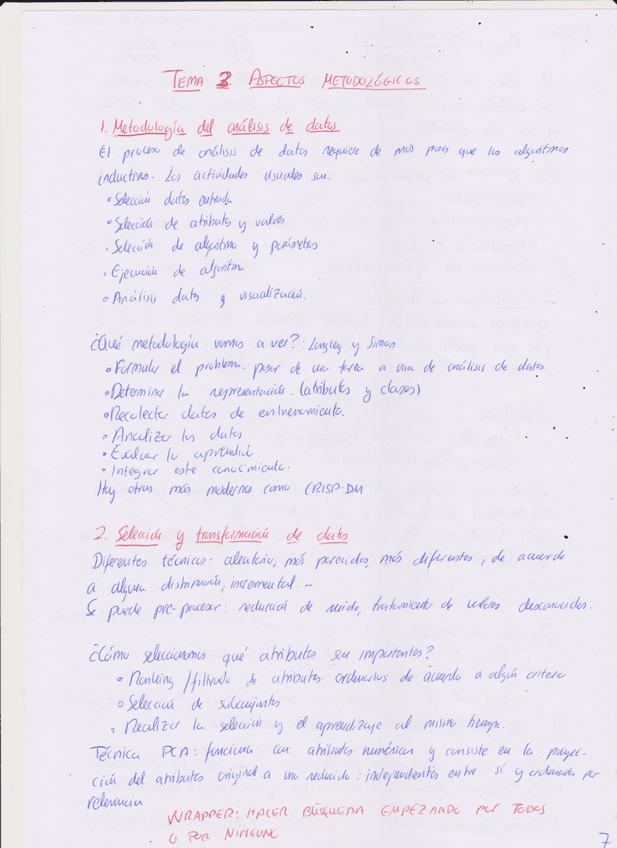 TEMA 3 ASPECTOS METODOLÓGICOS
1. Metodología del análisis de datos
El proceso de análisis de datos requiere de más pasos que los algoritmos
inductivos. Las actividades usuales son:
• Selección datos entrada
• Selección de atributos y valores
• Selección de algoritmo y parámetros
• Ejecución de algoritmo
• Análisis datos y visualización.
¿Qué metodología vamos a ver?: Langley y Simon
• Formular el problema: pasar de una tarea a una de análisis de datos
• Determinar la representación. (atributos y clases)
• Recolectar datos de entrenamiento.
• Analizar los datos
• Evaluar lo aprendido
• Integrar este conocimiento.
Hay otras más modernas como CRISP-DM
2. Selección y transformación de datos
Diferentes técnicas: aleatorio, más parecidos, más diferentes, de acuerdo
a alguna distribución, incremental...
Se puede pre-procesar: reducción de ruido, tratamiento de valores desconocidos.
¿Cómo seleccionamos qué atributos son importantes?
• Ranking / filtrado de atributos: ordenarlos de acuerdo a algún criterio
• Selección de subconjuntos
• Realizar la selección y el aprendizaje al mismo tiempo.
Técnica PCA: funciona con atributos numéricos y consiste en la proyec-
ción del atributos original a uno reducido: independientes entre sí y ordenados por
relevancia
WRAPPER: HACER BÚSQUEDA EMPEZANDO POR TODOS
O POR NINGUNO
7